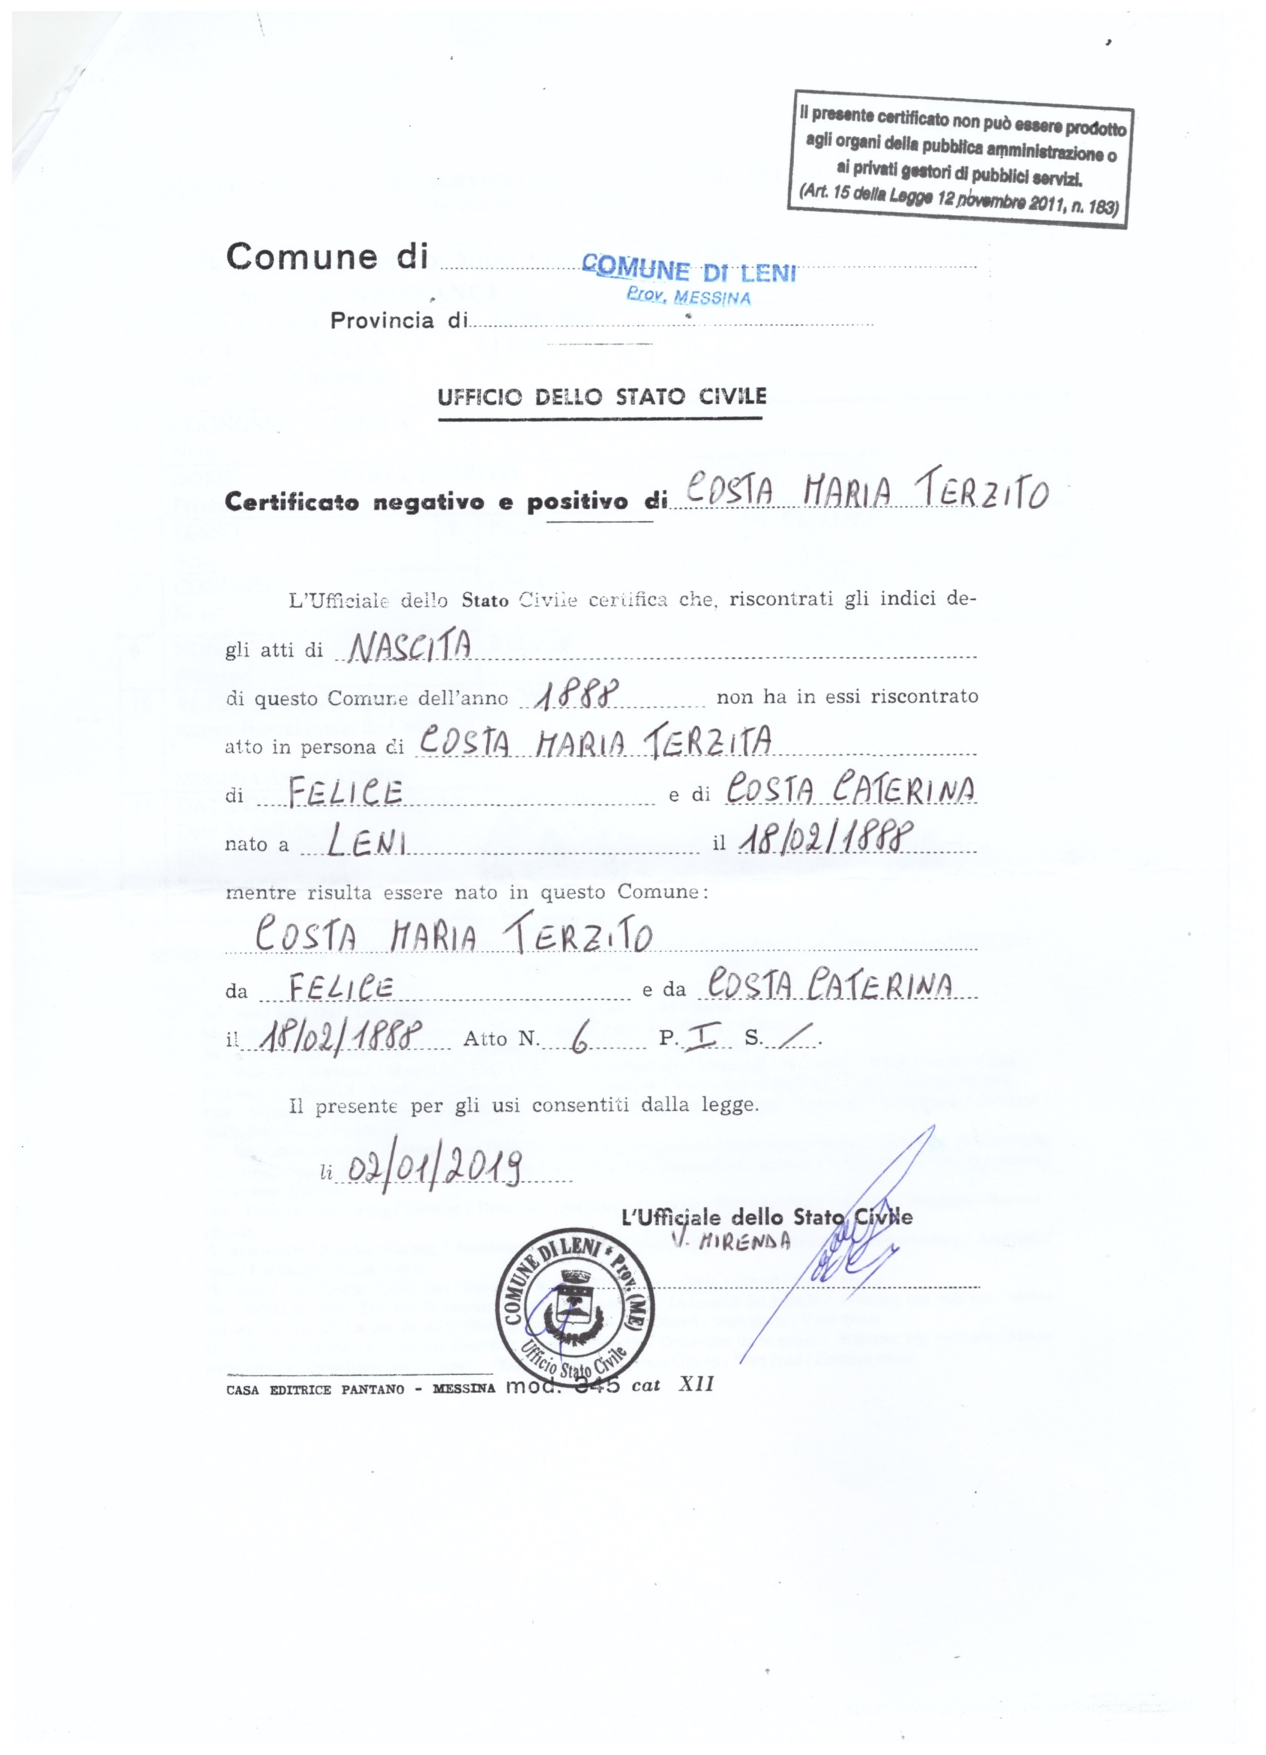 Il presente certificato non può essere prodotto
agli organi della pubblica amministrazione o
ai privati gestori di pubblici servizi.
(Art. 15 della Legge 12 novembre 2011, n. 183)
Comune di COMUNE DI LENI
Prov. MESSINA
Provincia di
UFFICIO DELLO STATO CIVILE
Certificato negativo e positivo di COSTA MARIA TERZITO
L'Ufficiale dello Stato Civile certifica che, riscontrati gli indici de-
gli atti di NASCITA
di questo Comune dell'anno 1888 non ha in essi riscontrato
atto in persona di COSTA MARIA TERZITA
di FELICE e di COSTA CATERINA
nato a LENI il 18/02/1888
mentre risulta essere nato in questo Comune:
COSTA MARIA TERZITO
da FELICE e da COSTA CATERINA
il 18/02/1888 Atto N. 6 P. I S. /.
Il presente per gli usi consentiti dalla legge.
li 02/01/2019
L'Ufficiale dello Stato Civile
V. MIRENDA
COMUNE DI LENI * Prov. (ME)
Ufficio Stato Civile
CASA EDITRICE PANTANO - MESSINA mod. 345 cat XII